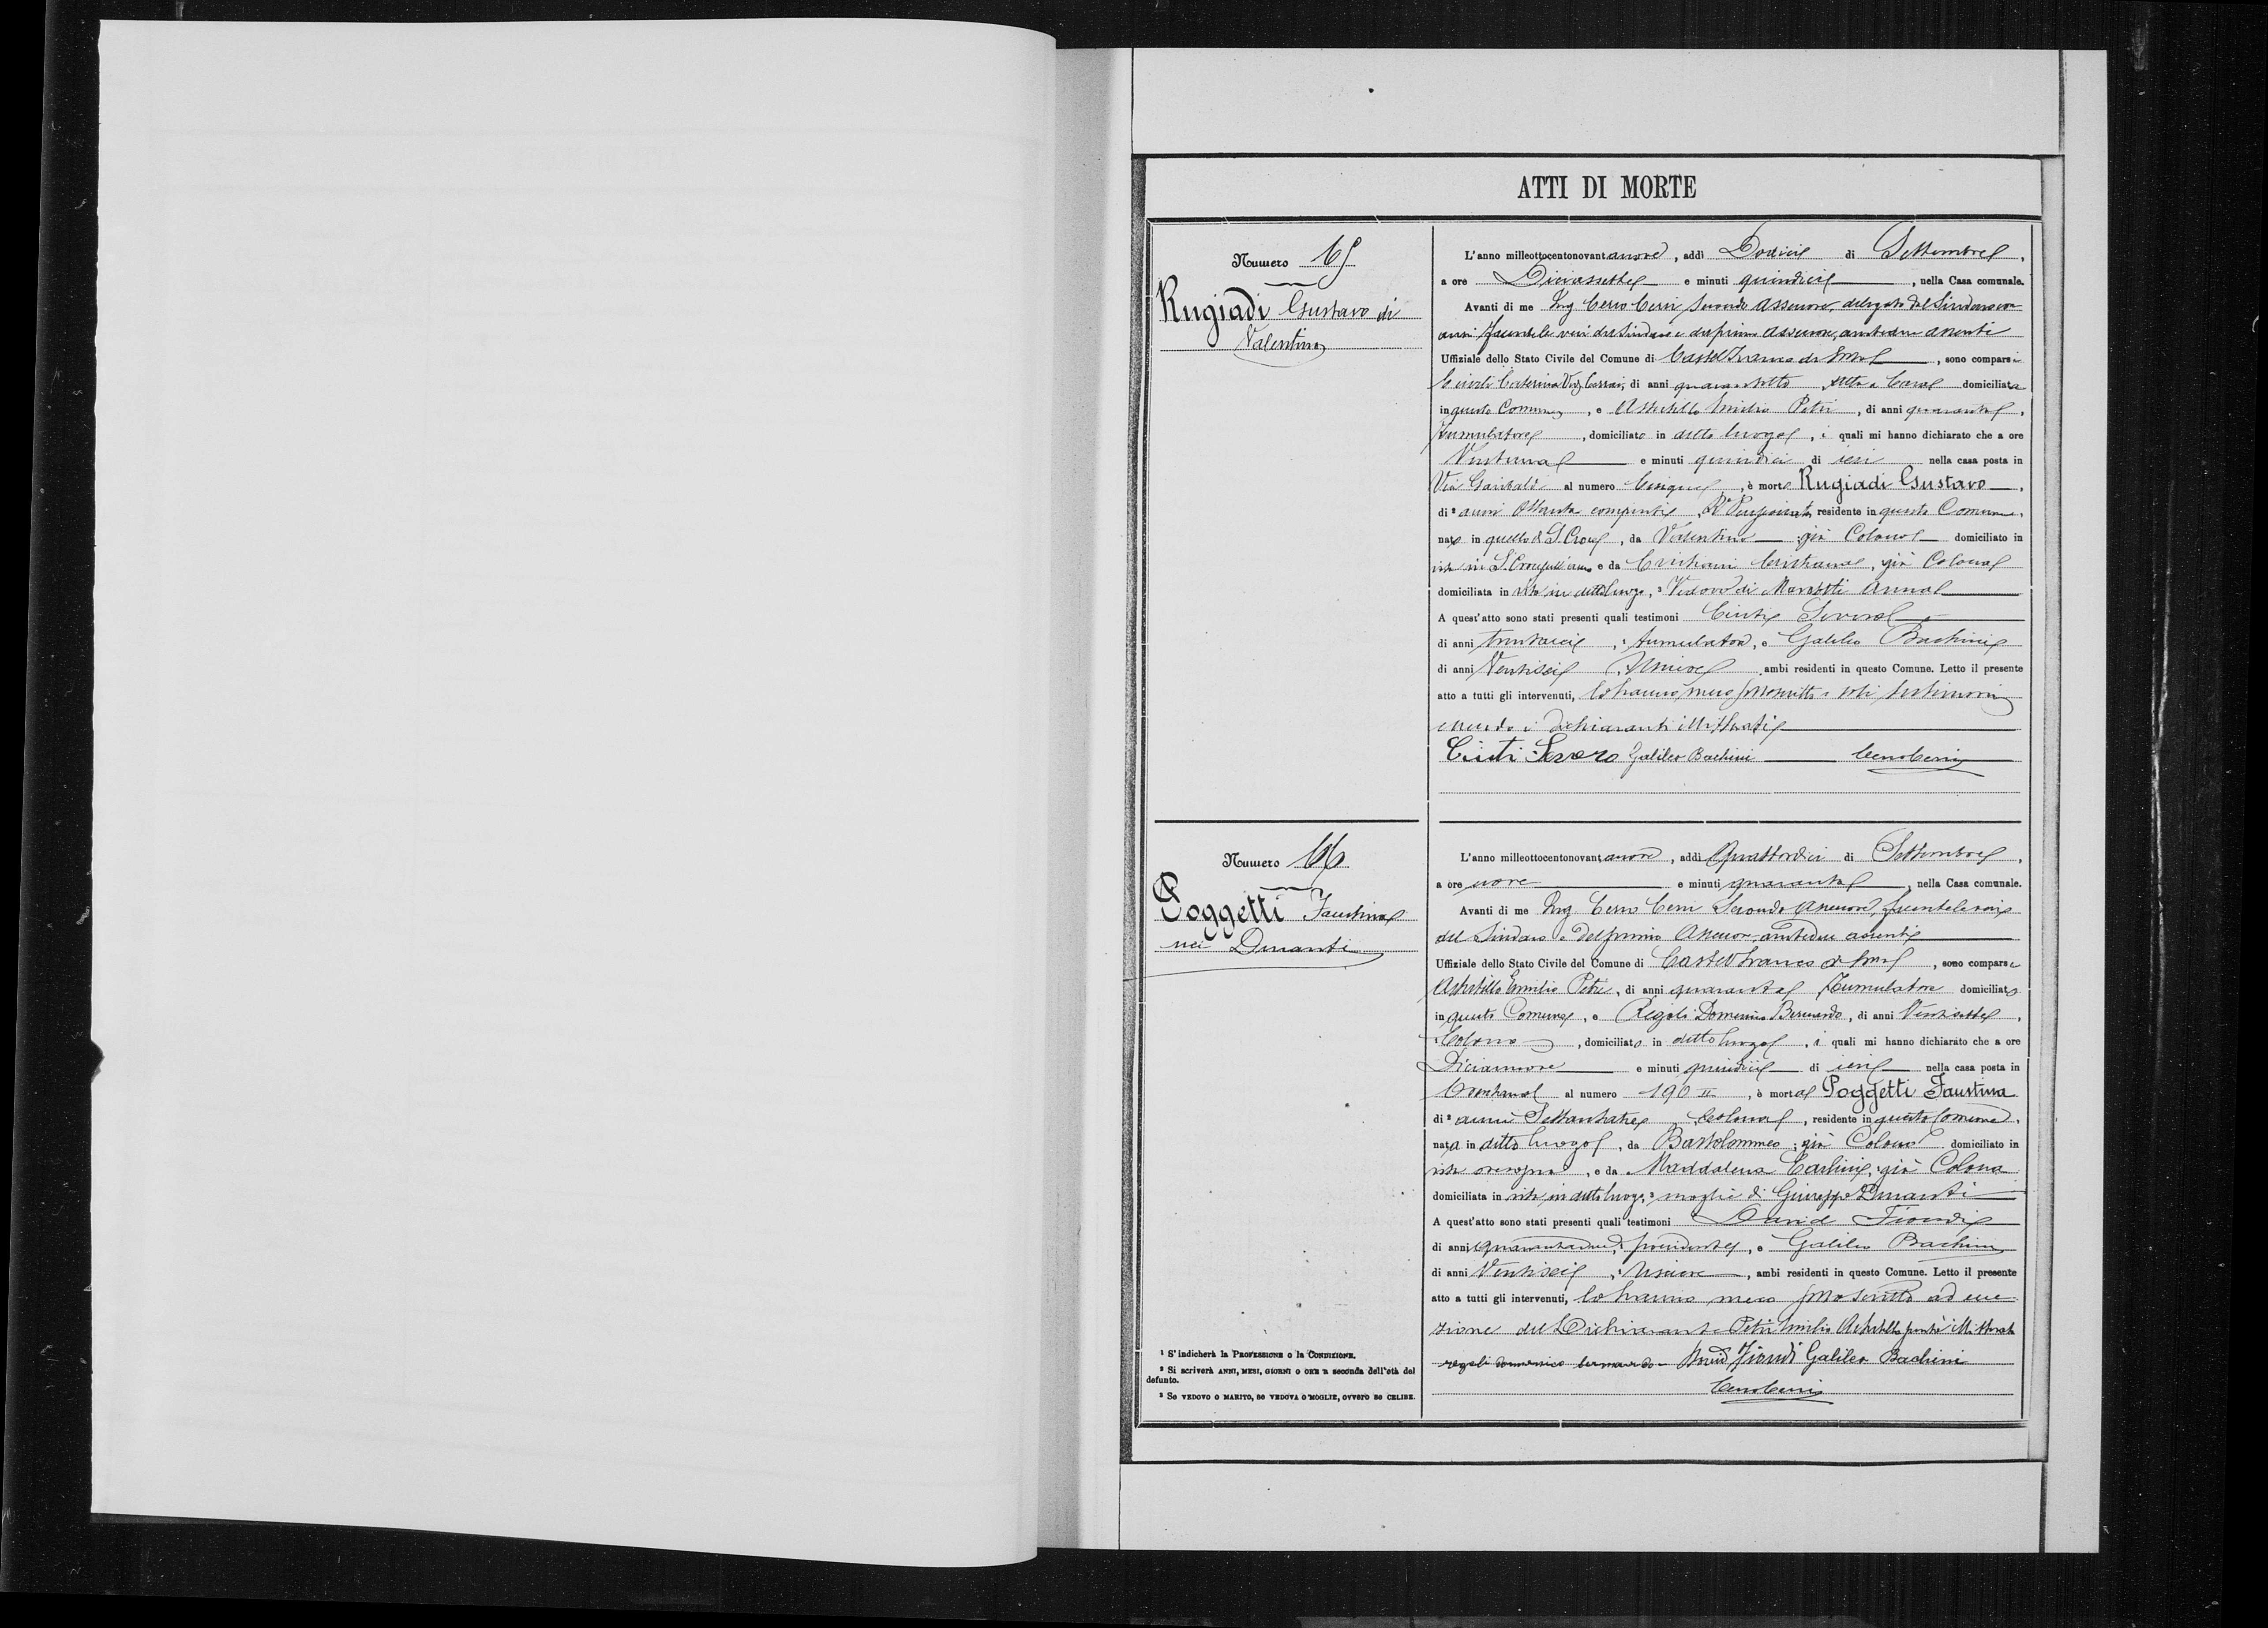 ATTI DI MORTE
Numero 65
Rugiadi Gustavo di
Valentino
L'anno milleottocentonovantanove, addì Dodici di Settembre,
a ore Diciassette e minuti quindici, nella Casa comunale.
Avanti di me Ing Cerro Cerri Secondo Assessore, delegato del Sindaco
anzi facente le veci del Sindaco e del primo Assessore, ambedue assenti
Uffiziale dello Stato Civile del Comune di Castelfranco di Sotto, sono comparsi
Ciuti Caterina Ved, di anni quarantotto, atta a Casa domiciliata
in questo Comune, e Astutillo Emilio Petri, di anni quaranta,
tumulatore, domiciliato in detto luogo, i quali mi hanno dichiarato che a ore
Ventuna e minuti quindici di ieri nella casa posta in
Via Garibaldi al numero Cinque, è morto Rugiadi Gustavo,
di² anni Ottanta compiuti, Rº Pensionato, residente in questo Comune,
nato in quello di S. Croce, da Valentino già Colono domiciliato in
vita in S. Croce e da Cristiani Cristiana, già Colona
domiciliata in vita in detto luogo, ³ Vedovo di Marotti Anna
A quest'atto sono stati presenti quali testimoni Ciuti Severo
di anni trentasei, tumulatore, e Galileo Bachini
di anni Ventisei, Usciere, ambi residenti in questo Comune. Letto il presente
atto a tutti gli intervenuti, lo hanno meco sottoscritto i soli testimoni
essendo i dichiaranti illitterati
Ciuti Severo Galileo Bachini Cerro Cerri
Numero 66
Poggetti Faustina
nei Duranti
L'anno milleottocentonovantanove, addì Quattordici di Settembre,
a ore nove e minuti quaranta, nella Casa comunale.
Avanti di me Ing Cerro Cerri Secondo Assessore, facente le veci
del Sindaco e del primo Assessore ambedue assenti
Uffiziale dello Stato Civile del Comune di Castelfranco di Sotto, sono comparsi
Astutillo Emilio Petri, di anni quaranta, tumulatore domiciliato
in questo Comune, e Regoli Domenico Bernardo, di anni Ventisette,
Colono, domiciliato in detto luogo, i quali mi hanno dichiarato che a ore
Diciannove e minuti quindici di ieri nella casa posta in
Orentana al numero 190 II, è morta Poggetti Faustina
di² anni Settantatre, Colona, residente in questo Comune,
nata in detto luogo, da Bartolommeo, già Colono domiciliato in
vita, e da Maddalena Carlini, già Colona
domiciliata in vita in detto luogo, ³ moglie di Giuseppe Duranti
A quest'atto sono stati presenti quali testimoni David Fiondi
di anni quarantadue, possidente, e Galileo Bachini
di anni Ventisei, Usciere, ambi residenti in questo Comune. Letto il presente
atto a tutti gli intervenuti, lo hanno meco sottoscritto ad ecce
zione del Dichiarante Petri Emilio Astutillo perché illitterato
regoli domenico bernardo David Fiondi Galileo Bachini
Cerro Cerri
¹ S'indicherà la PROFESSIONE o la CONDIZIONE.
² Si scriverà ANNI, MESI, GIORNI o ORE a seconda dell'età del
defunto.
³ Se VEDOVO O MARITO, se VEDOVA O MOGLIE, OVVERO se CELIBE.